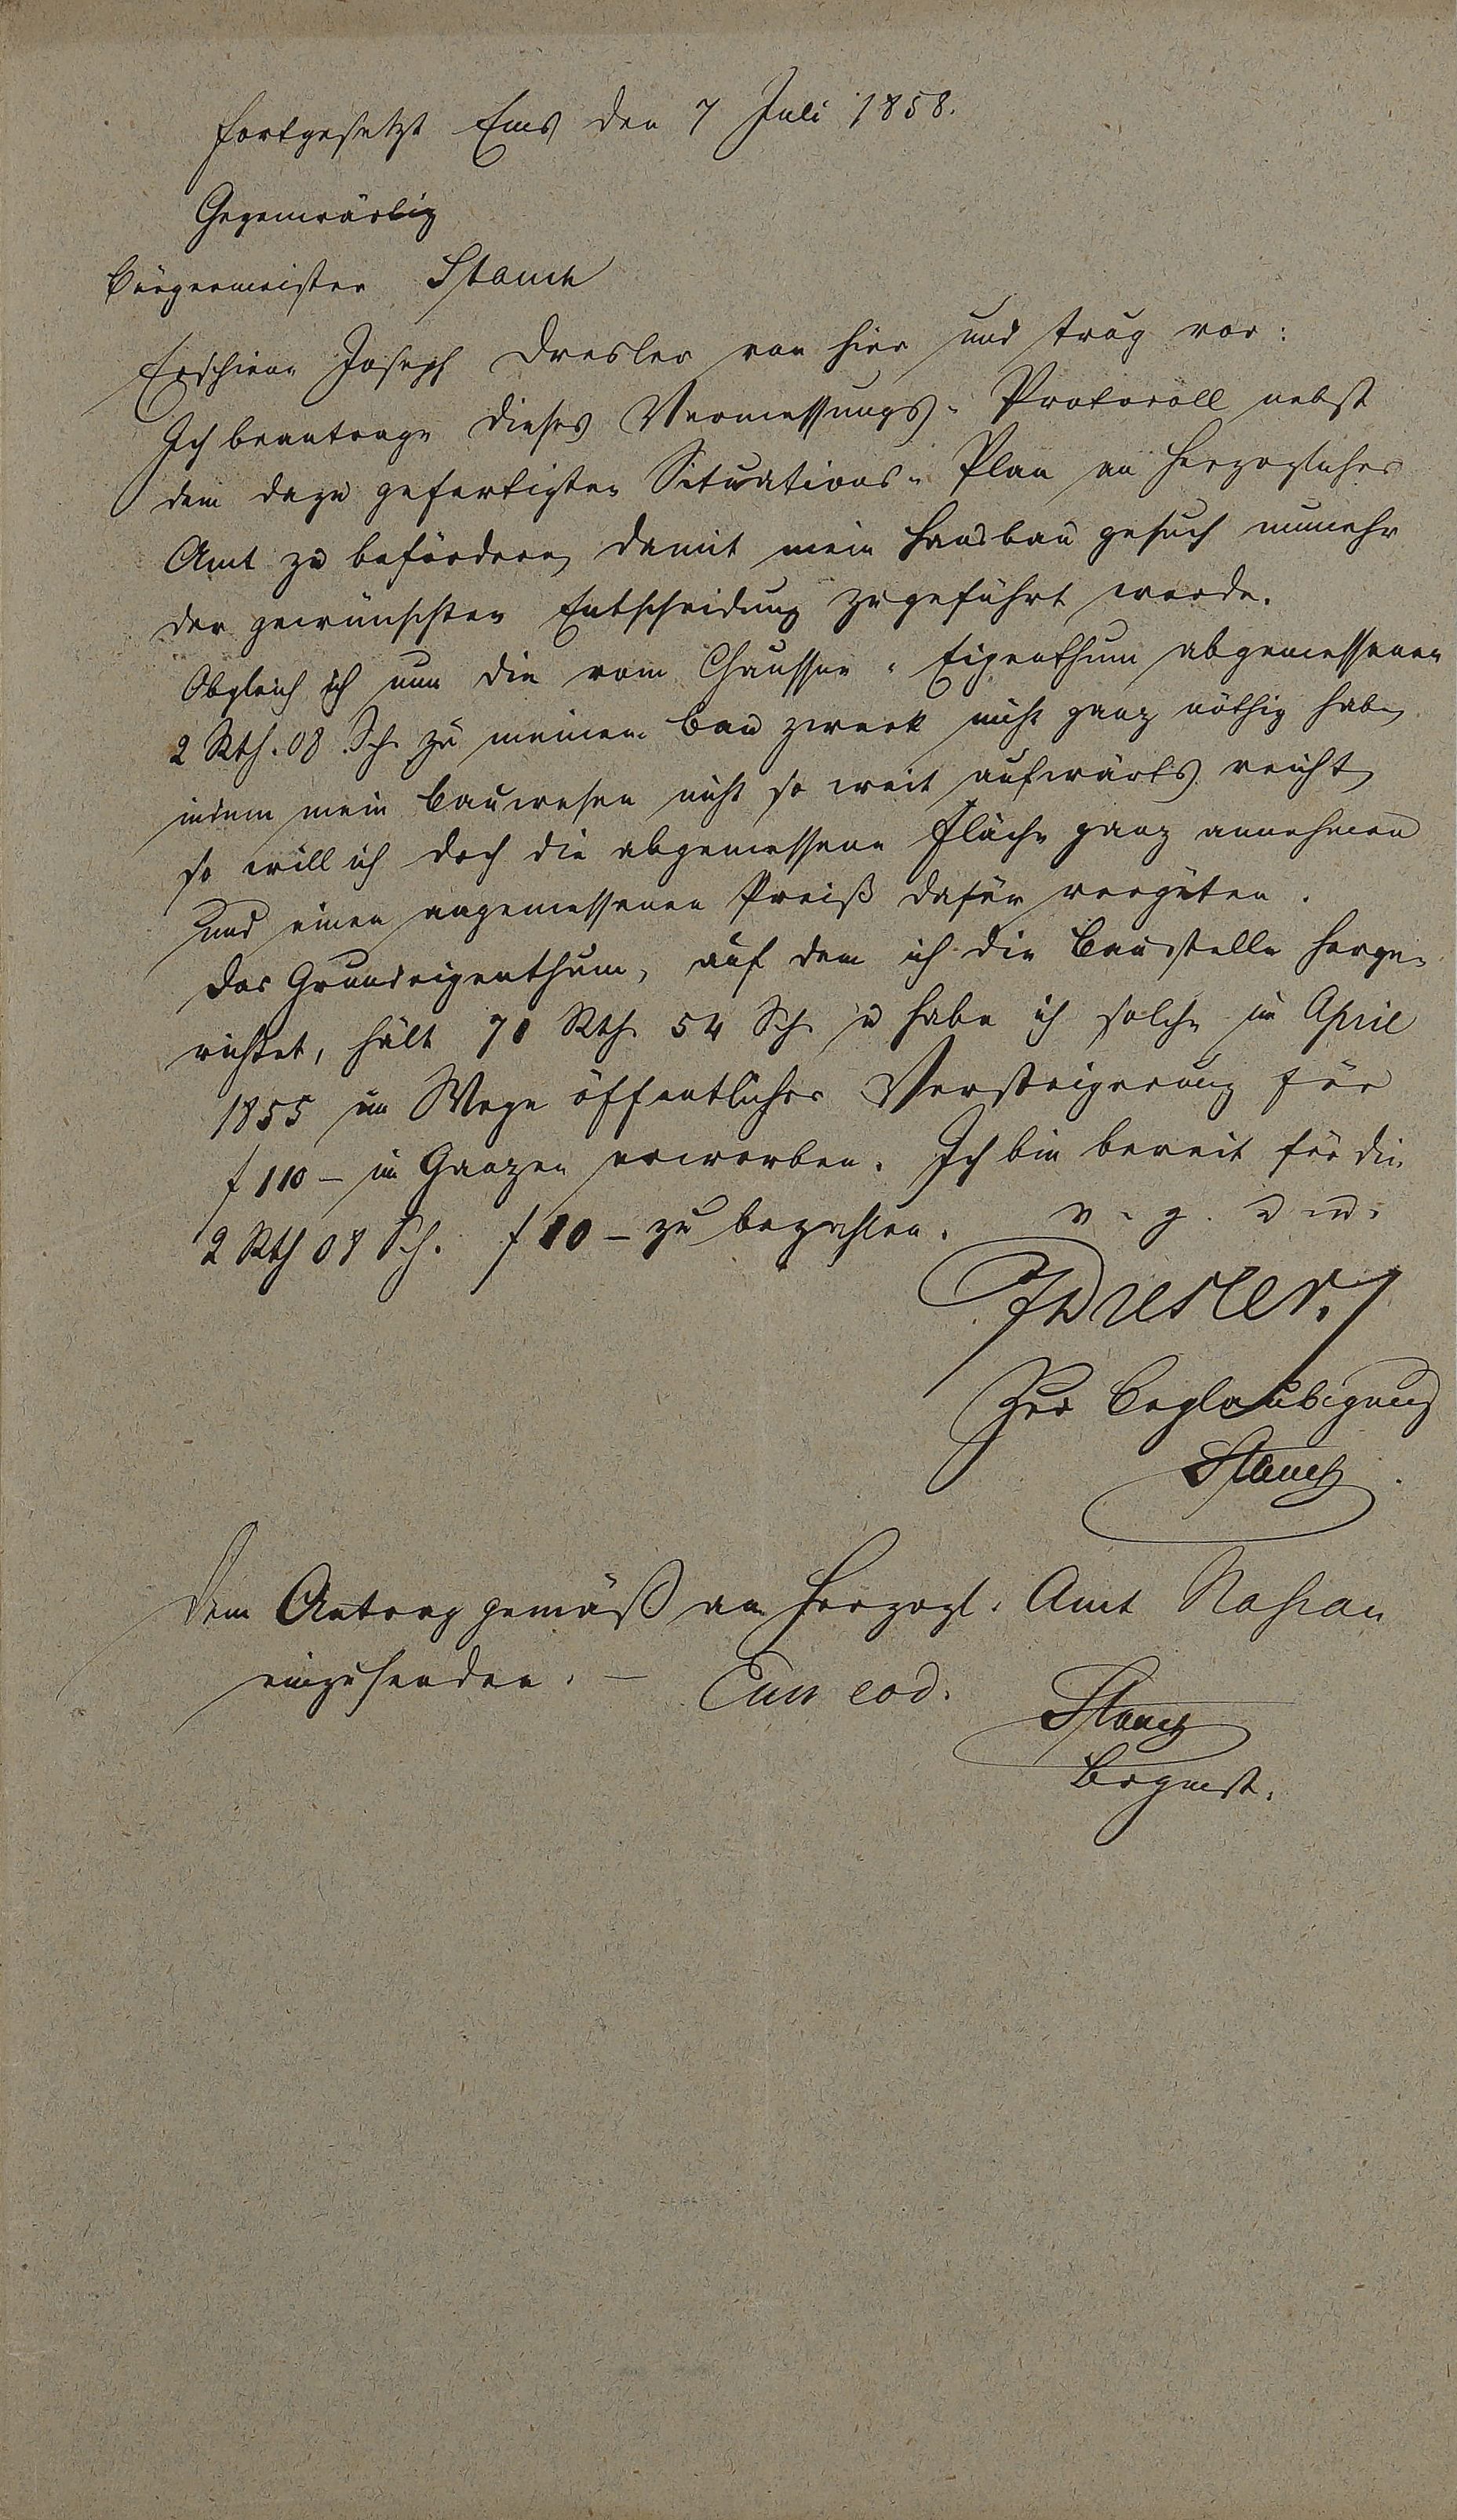 fortgesetzt Ems den 7 Juli 1858.
Gegenwärtig
Bürgermeister Stauch
Erschien Joseph Dresler von hier und trug vor:
Ich beantrage dieses Vermessungs-Protocoll nebst
dem dazu gefertigten Situations-Plan an Herzogliches
Amt zu befördern, damit mein Hausbau gesuch nunmehr
der gewünschten Entscheidung zugeführt werde.
Obgleich ich nun die vom Chaussee-Eigenthum abgemessenen
2 Rth. 08 Sch. zu meinem Bau zweck nicht ganz nöthig habe,
indem mein Bauwesen nicht so weit aufwärts reicht,
so will ich doch die abgemessene Fläche ganz annehmen
und einen angemessenen Preiß dafür vergüten.
Das Grundeigenthum, auf dem ich die Baustelle herge-
richtet, hält 70 Rth 54 Sch u habe ich solche im April
1855 im Wege öffentlicher Versteigerung für
f 110 – im Ganzen erworben. Ich bin bereit für die
2 Rth 08 Sch. f 10 – zu bezahlen. v. g. u. u.
J Dresler.
Zur Beglaubigung
Stauch.
Dem Antrag gemäß an Herzogl. Amt Nassau
einzusenden. – Ems eod.
Stauch
Brgmst.